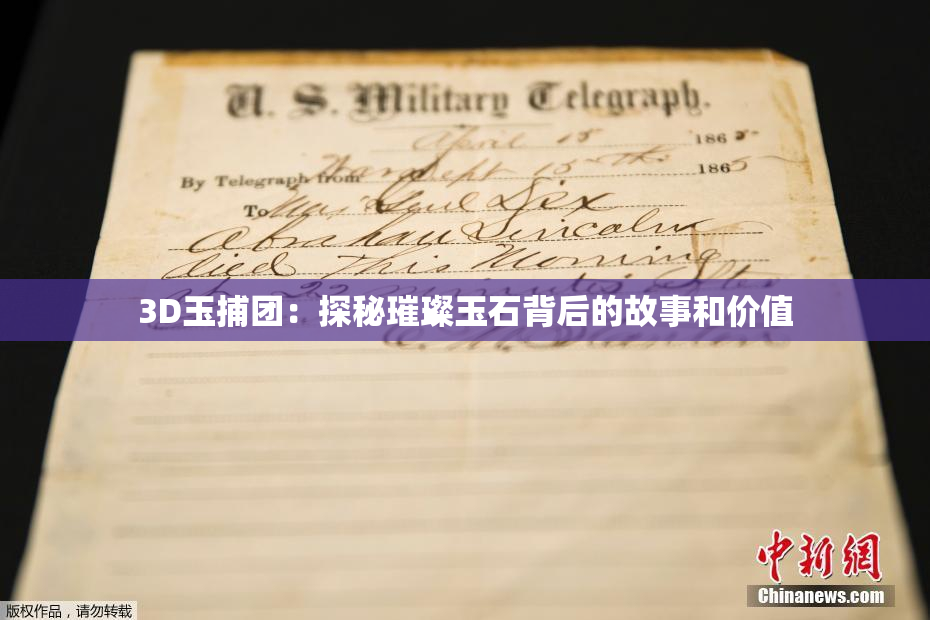 U. S. Military Telegraph.
April 15 1865
By Telegraph from War Dept 15th 1865
To Maj Genl Dix
Abraham Lincoln
died This Morning
at 22 minutes after
3D玉捕团：探秘璀璨玉石背后的故事和价值
中新网
Chinanews.com
版权作品，请勿转载